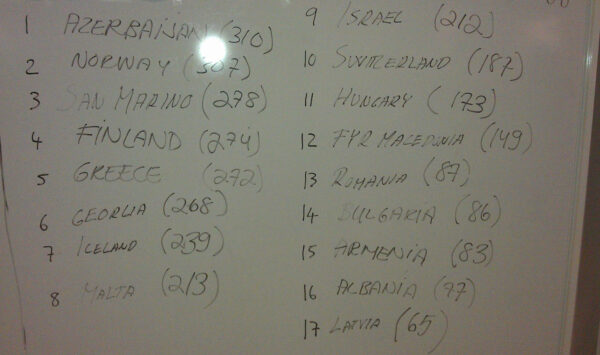 1 AZERBAIJAN (310)
2 NORWAY (307)
3 SAN MARINO (278)
4 FINLAND (274)
5 GREECE (272)
6 GEORGIA (268)
7 ICELAND (239)
8 MALTA (213)
9 ISRAEL (212)
10 SWITZERLAND (187)
11 HUNGARY (173)
12 FYR MACEDONIA (149)
13 ROMANIA (87)
14 BULGARIA (86)
15 ARMENIA (83)
16 ALBANIA (77)
17 LATVIA (65)